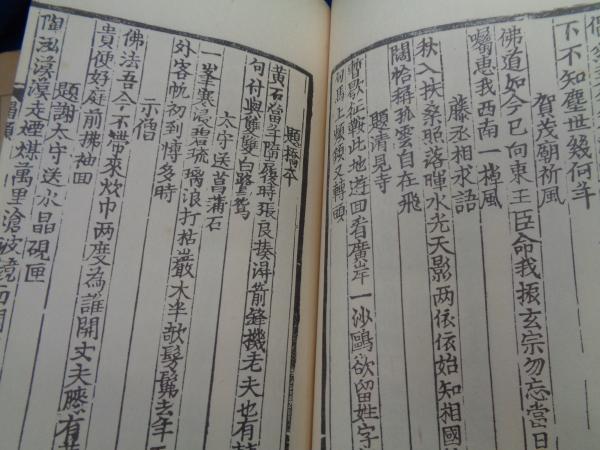 下不知塵世幾何年
賀茂廟祈風
佛道如今已向東王臣命我振玄宗勿忘當日
囑惠我西南一橫風
藤丞相求語
秋入扶桑照落暉水光天影两依依始知相國
闊恰稱孤雲自在飛
題清見寺
暫歇征鞍此地遊回看廣岸一沙鷗欲留姓字
句馬上頻頻又轉頭
題橋本
黄石留子隋履時張良接得箭鋒機老夫也有
句付與雙雙白鷺鷥
太守送菖蒲石
一峯寒浸碧琉璃浪打枯巖大半欹髣髴去年
外客帆初到博多時
示僧
佛法吾今不帶來炊巾两度為誰開丈夫膝有
貴便好庭前拂袖回
題謝太守送水晶硯匣
陶泓漠漠走煙煤萬里滄波鏡面開